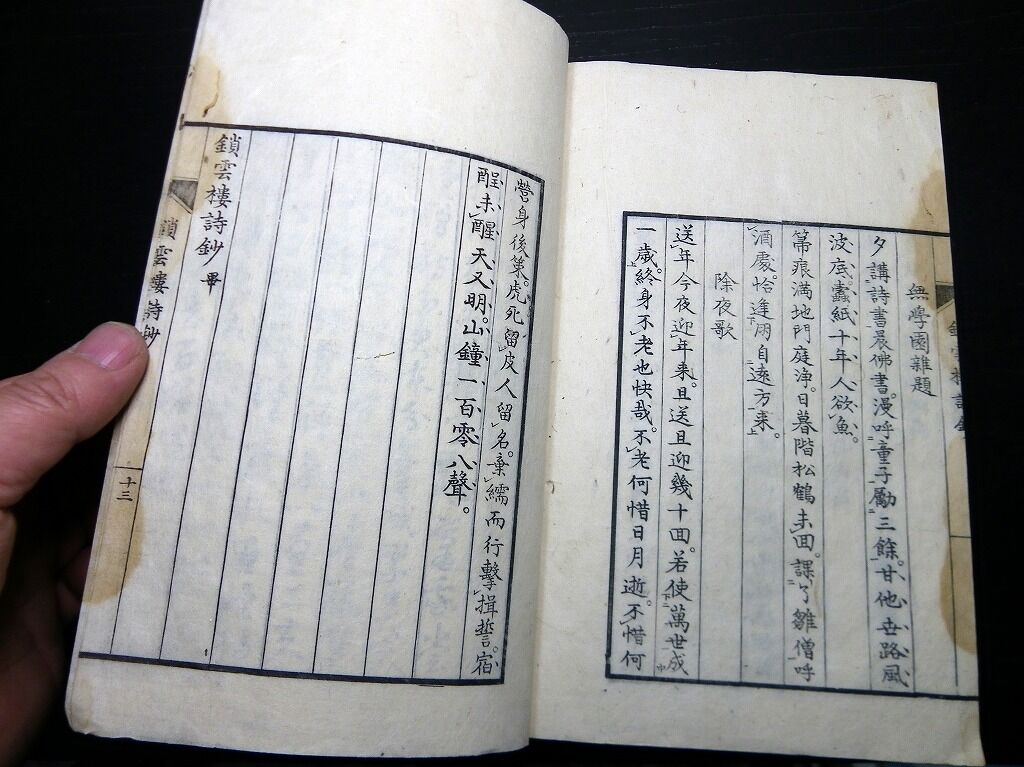 無學園雜題
夕講詩書晨佛書。漫呼童子勵三餘。甘他世路風
波底。蠹紙十年人欲魚。
箒痕満地門庭浄。日暮階松鶴未回。課了雛僧呼
酒處。恰逢朋自遠方来。
除夜歌
送年今夜迎年来。且送且迎幾十回。若使萬世成
一歳。終身不老也快哉。不老何惜日月逝。不惜何
營身後策。虎死留皮人留名。棄繻而行擊揖誓。宿
酲未醒天又明。山鐘一百零八聲。
鎖雲樓詩鈔 畢
鎖雲樓詩鈔
十三